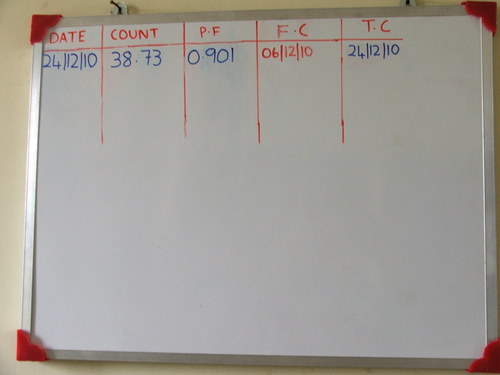 DATE COUNT P.F F.C T.C
24/12/10 38.73 0.901 06/12/10 24/12/10